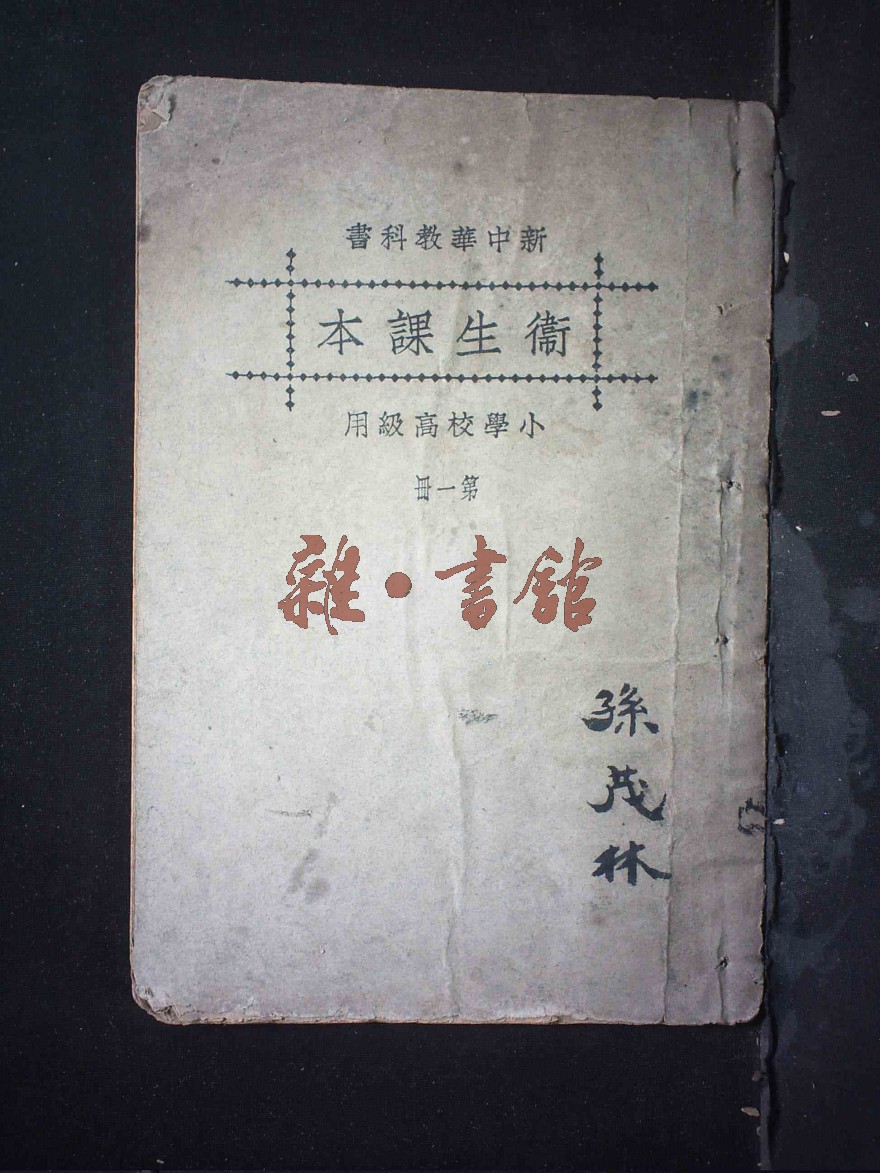 新中華教科書
衞生課本
小學校高級用
第一冊
雜·書館
孫茂林